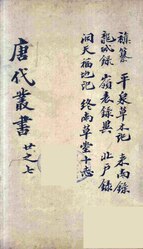 襍纂 平泉草木記 来南錄
龍城錄 嶺表錄異 北戶錄
洞天福地記 終南草堂十志
唐代叢書 廿之七